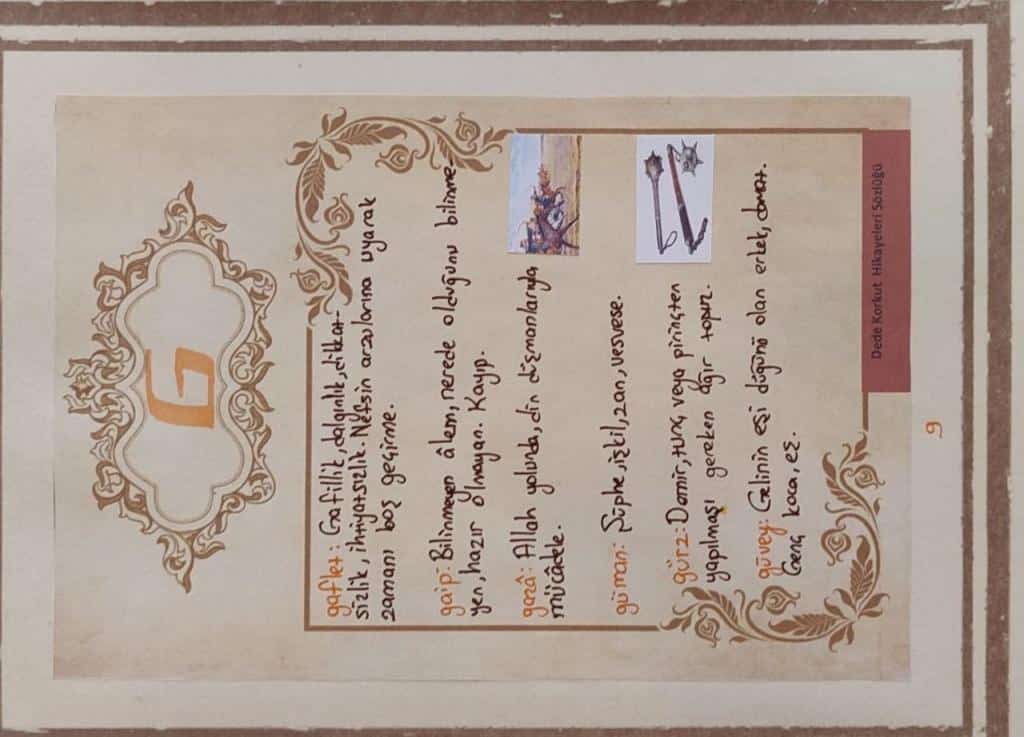 G
gaflet: Gafillik, dalgınlık, dikkat-
sizlik, ihtiyatsızlık. Nefsin arzularına uyarak
zamanı boş geçirme.
gaip: Bilinmeyen âlem, nerede olduğunu bilinme-
yen, hazır olmayan. Kayıp.
gazâ: Allah yolunda, din düşmanlarıyla
mücâdele.
güman: Şüphe, işkil, zan, vesvese.
gürz: Demir, tunç veya pirinçten
yapılması gereken ağır topuz.
güvey: Gelinin eşi düğünü olan erkek, damat.
Genç koca, eş.
Dede Korkut Hikayeleri Sözlüğü
9